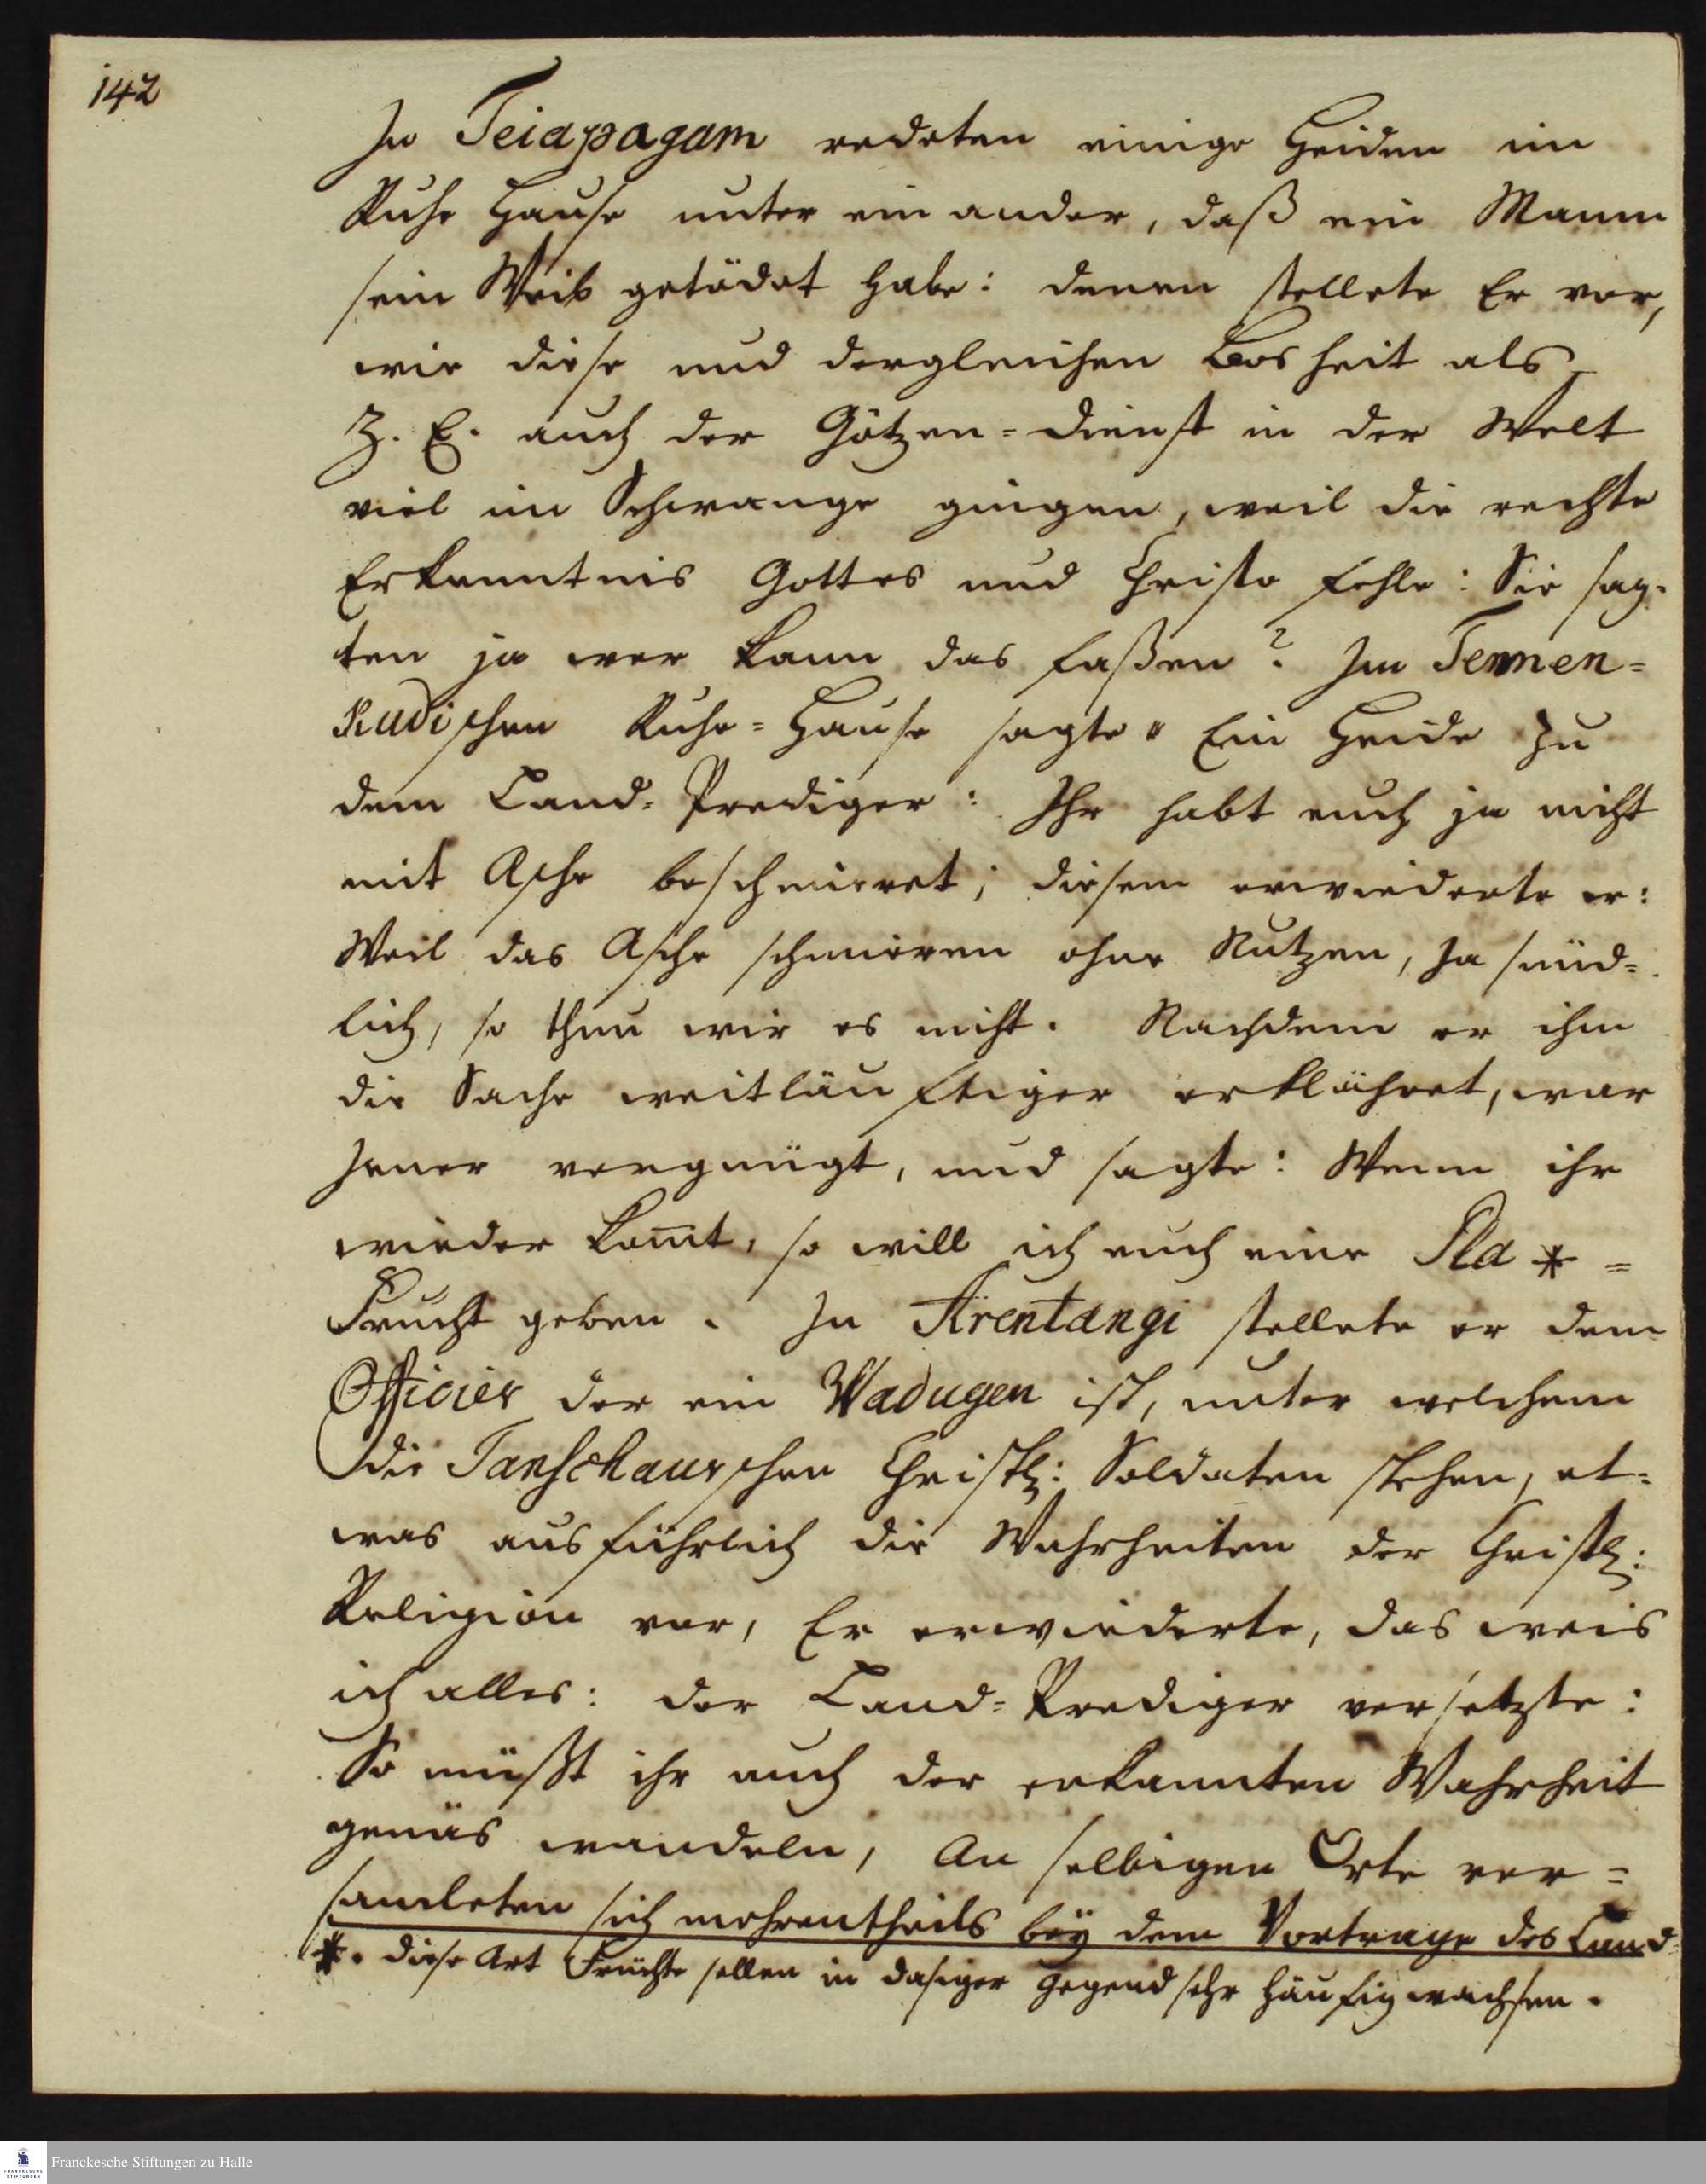 142
In Teiapagam redeten einige Heiden im
Ruhe Hause unter ein ander, daß ein Mann
sein Weib getödet habe: denen stellete Er vor,
wie diese und dergleichen Bosheit als
Z. E. auch der Götzen=Dienst in der Welt
viel im Schwange gingen, weil die rechte
Erkenntnis Gottes und Christo fehle: Sie sag=
ten ja wer kann das faßen? Im Tennen=
Kudischen Ruhe=Hause sagte Ein Heide zu
dem Land=Prediger: Ihr habt euch ja nicht
mit Asche beschmieret; diesem erwiederte er:
Weil das Asche schmieren ohne Nutzen, ja sünd=
lich, so thun wir es nicht. Nachdem er ihm
die Sache weitläuftiger erklähret, war
jener vergnügt, und sagte: Wenn ihr
wieder kom̄t, so will ich euch eine Pla * =
Frucht geben. In Arentangi stellete er dem
Officier der ein Wadugen ist, unter welchem
die Tanschaurschen Christl: Soldaten stehen, et=
was ausführlich die Wahrheiten der Christl:
Religion vor, Er erwiederte, das weis
ich alles: der Land=Prediger versetzte:
So müßt ihr auch der erkannten Wahrheit
gemäs wandeln, An selbigen Orte ver=
samleten sich mehrentheils bey dem Vortrage des Land=
*. diese Art Früchte sollen in dasiger Gegend sehr häufig wachsen.
Franckesche Stiftungen zu Halle
FRANCKESCHE STIFTUNGEN